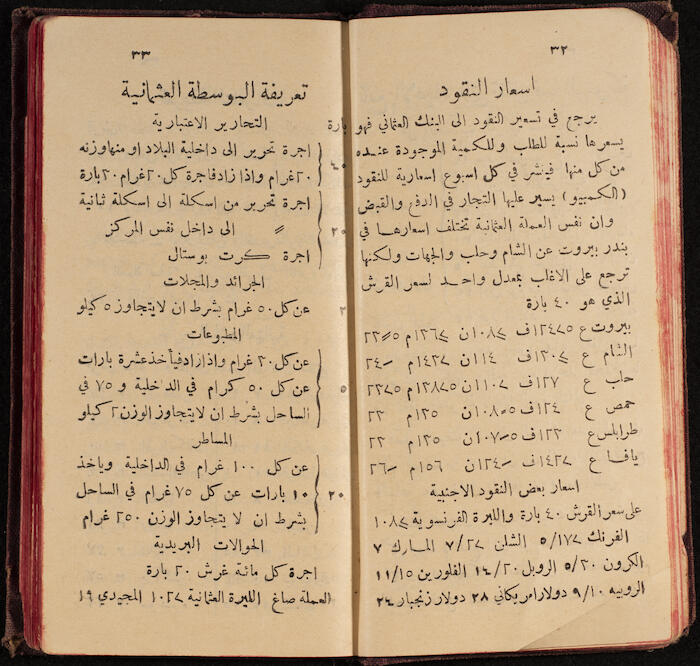 ٣٢
اسعار النقود
يرجع في تسعير النقود الى البنك العثماني فهو
يسعرها نسبة للطلب وللكمية الموجودة عنده
من كل منها فينشر في كل اسبوع اسعارية للنقود
(الكمبيو) يسير عليها التجار في الدفع والقبض
وان نفس العملة العثمانية تختلف اسعارها في
بندر بيروت عن الشام وحلب والجهات ولكنها
ترجع على الاغلب بمعدل واحد لسعر القرش
الذي هو ٤٠ بارة
بيروت ع
الشام ع
حلب ع ١٢٧ف
حمص ع ١٢٤ف ١٢٥م ٢٣
طرابلس ع ١٢٣ف ١٢٥م ٢٣
يافا ع ١٥٦م
اسعار بعض النقود الاجنبية
على سعر القرش ٤٠ بارة والليرة الفرنسوية
الفرنك الشلن المارك ٧
الكرون ٥/٢٠ الروبل ١٤/٢٠ الفلورين ١١/١٥
الروبيه ٩/١٠ دولار امريكاني ٢٨ دولار زنجبار ٢٤
٣٣
تعريفة البوسطة العثمانية
التحارير الاعتبارية
بارة
اجرة تحرير الى داخلية البلاد او منها وزنه
٤٠
٢٠ غرام واذا زاد فاجرة كل ٢٠ غرام ٢٠ بارة
اجرة تحرير من اسكلة الى اسكلة ثانية
٢٠
〃 الى داخل نفس المركز
اجرة كرت بوستال
الجرائد والمجلات
عن كل ٥٠ غرام بشرط ان لا يتجاوز ٥ كيلو
٢
المطبوعات
عن كل ٢٠ غرام واذا زاد فيأخذ عشرة بارات
٥
عن كل ٥٠ كرام في الدخلية و ٧٥ في
الساحل بشرط ان لا يتجاوز الوزن ٢ كيلو
المساطر
عن كل ١٠٠ غرام في الداخلية وياخذ
٢٠
١٠ بارات عن كل ٧٥ غرام في الساحل
بشرط ان لا يتجاوز الوزن ٢٥٠ غرام
الحوالات البريدية
اجرة كل مائة غرش ٢٠ بارة
العملة صاغ الليرة العثمانية المجيدي ١٩